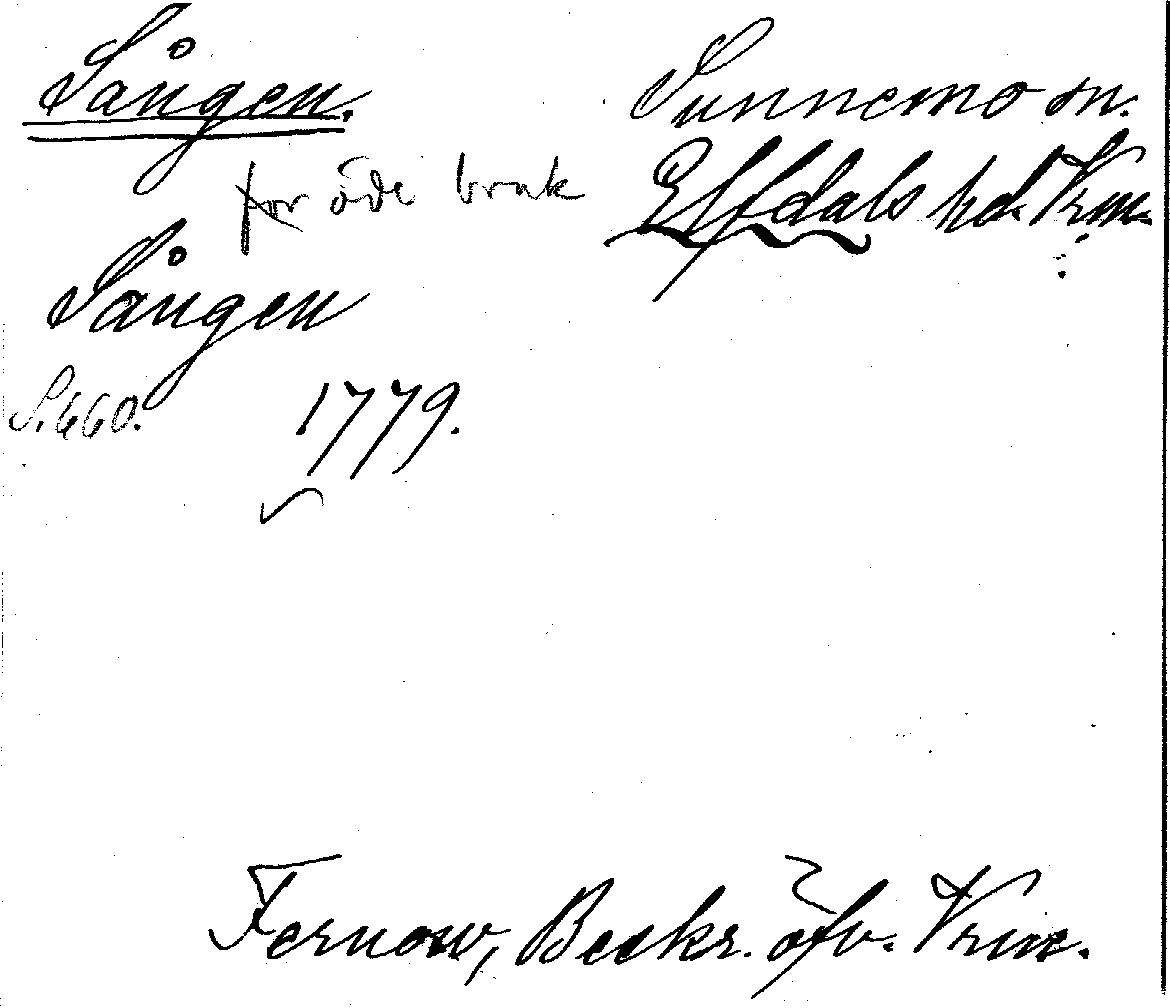 Sången.
Sunnemo sn.
Elfdals hd. Vrm.
för öde bruk
Sången
S. 660.
1779.
Fernow, Beskr. öfv. Vrm.